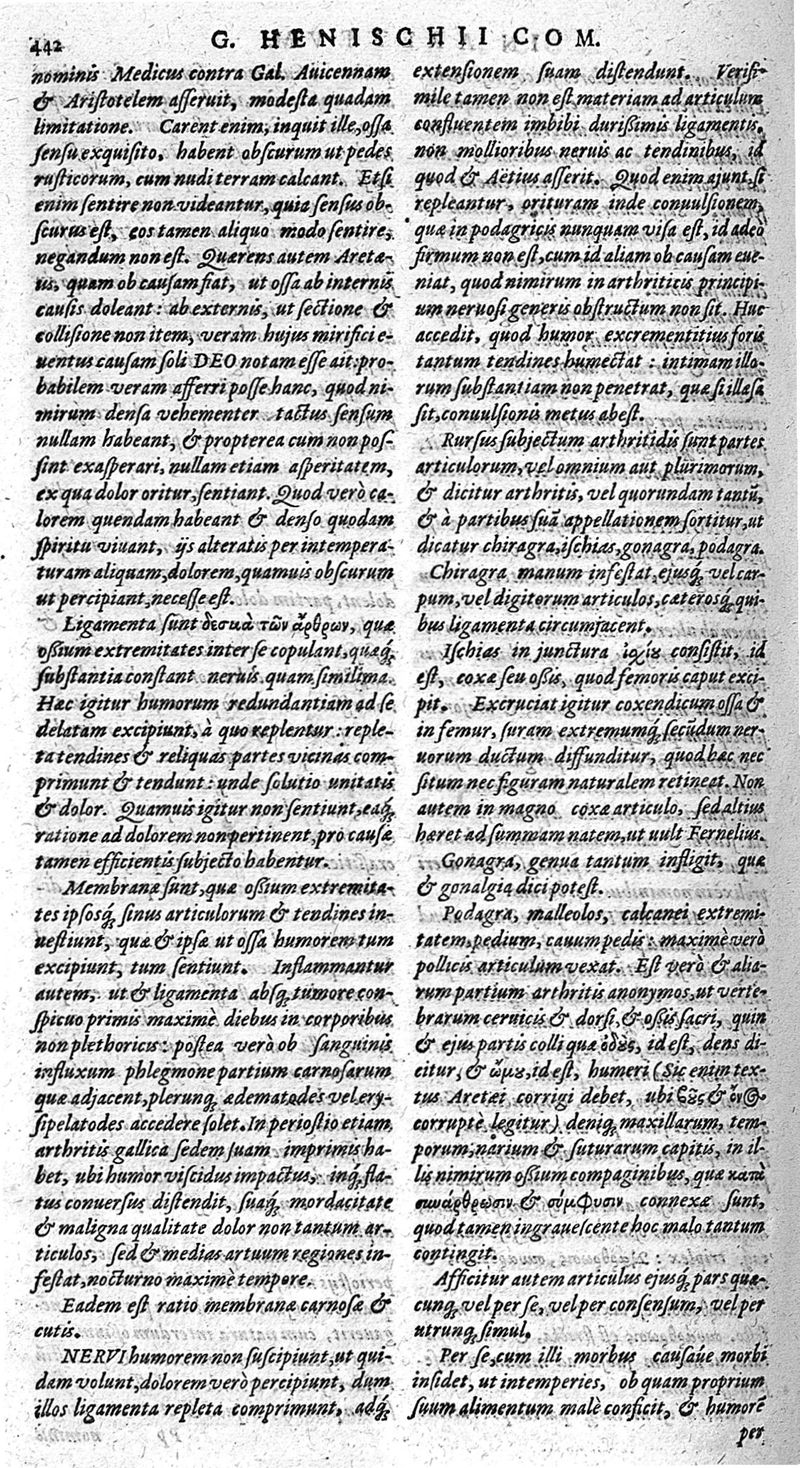 442
G. HENISCHII COM.
nominis Medicus contra Gal. Auicennam
& Aristotelem asseruit, modesta quadam
limitatione. Carent enim, inquit ille, ossa
sensu exquisito, habent obscurum ut pedes
rusticorum, cum nudi terram calcant. Etsi
enim sentire non videantur, quia sensus ob-
scurus est, eos tamen aliquo modo sentire,
negandum non est. Quærens autem Aretæ-
us, quam ob causam fiat, ut ossa ab internis
causis doleant: ab externis, ut sectione &
collisione non item, veram hujus mirifici e-
uentus causam soli DEO notam esse ait: pro-
babilem veram afferri posse hanc, quod ni-
mirum densa vehementer tactus sensum
nullam habeant, & propterea cum non pos-
sint exasperari, nullam etiam asperitatem,
ex qua dolor oritur, sentiant. Quod verò ca-
lorem quendam habeant & denso quodam
spiritu viuant, ijs alteratis per intempera-
turam aliquam, dolorem, quamuis obscurum
ut percipiant, necesse est.
Ligamenta sunt δεσμὰ τῶν ἄρθρων, quæ
oßium extremitates inter se copulant, quæq́;
substantia constant neruis quam simillima.
Hæc igitur humorum redundantiam ad se
delatam excipiunt, à quo replentur: reple-
ta tendines & reliquas partes vicinas com-
primunt & tendunt: unde solutio unitatis
& dolor. Quamuis igitur non sentiunt, eaq́;
ratione ad dolorem non pertinent, pro causæ
tamen efficientis subjecto habentur.
Membranæ sunt, quæ oßium extremita-
tes ipsosq́; sinus articulorum & tendines in-
uestiunt, quæ & ipsæ ut ossa humorem tum
excipiunt, tum sentiunt. Inflammantur
autem, ut & ligamenta absq́; tumore con-
spicuo primis maximè diebus in corporibus
non plethoricis: postea verò ob sanguinis
influxum phlegmone partium carnosarum
quæ adjacent, plerunq́; œdematodes vel ery-
sipelatodes accedere solet. In periostio etiam
arthritis gallica sedem suam imprimis ha-
bet, ubi humor viscidus impactus, inq́; fla-
tus conuersus distendit, suaq́; mordacitate
& maligna qualitate dolor non tantum ar-
ticulos, sed & medias artuum regiones in-
festat, nocturno maximè tempore.
Eadem est ratio membranæ carnosæ &
cutis.
NERVI humorem non suscipiunt, ut qui-
dam volunt, dolorem verò percipiunt, dum
illos ligamenta repleta comprimunt, adq́;
extensionem suam distendunt. Verisi-
mile tamen non est materiam ad articulum
confluentem imbibi durißimis ligamentis,
non mollioribus neruis ac tendinibus, id
quod & Aëtius asserit. Quod enim ajunt, si
repleantur, orituram inde conuulsionem,
quæ in podagricis nunquam visa est, id adeò
firmum non est, cum id aliam ob causam eue-
niat, quod nimirum in arthriticis principi-
um neruosi generis obstructum non sit. Huc
accedit, quod humor excrementitius foris
tantum tendines humectat: intimam illo-
rum substantiam non penetrat, quæ si illæsa
sit, conuulsionis metus abest.
Rursus subjectum arthritidis sunt partes
articulorum, vel omnium aut plurimorum,
& dicitur arthritis, vel quorundam tantũ,
& à partibus suã appellationem sortitur, ut
dicatur chiragra, ischias, gonagra, podagra.
Chiragra manum infestat, ejusq́; vel car-
pum, vel digitorum articulos, cæterosq́; qui-
bus ligamenta circumjacent.
Ischias in junctura ἰσχίου consistit, id
est, coxæ seu oßis, quod femoris caput exci-
pit. Excruciat igitur coxendicum ossa &
in femur, suram extremumq́; secũdum ner-
uorum ductum diffunditur, quod hæc nec
situm nec figuram naturalem retineat. Non
autem in magno coxæ articulo, sed altius
hæret ad summam natem, ut uult Fernelius.
Gonagra, genua tantum infligit, quæ
& gonalgia dici potest.
Podagra, malleolos, calcanei extremi-
tatem, pedium, cauum pedis: maximè verò
pollicis articulum vexat. Est verò & alia-
rum partium arthritis anonymos, ut verte-
brarum ceruicis & dorsi, & oßis sacri, quin
& ejus partis colli quæ ὀδοὺς, id est, dens di-
citur, & ὤμου, id est, humeri (Sic enim tex-
tus Aretæi corrigi debet, ubi &
corruptè legitur) deniq́; maxillarum, tem-
porum, narium & suturarum capitis, in il-
lis nimirum oßium compaginibus, quæ κατὰ
συνάρθρωσιν & σύμφυσιν connexæ sunt,
quod tamen ingrauescente hoc malo tantum
contingit.
Afficitur autem articulus ejusq́; pars quæ-
cunq́; vel per se, vel per consensum, vel per
utrunq́; simul,
Per se, cum illi morbus causaúe morbi
insidet, ut intemperies, ob quam proprium
suum alimentum malè conficit, & humorẽ
per